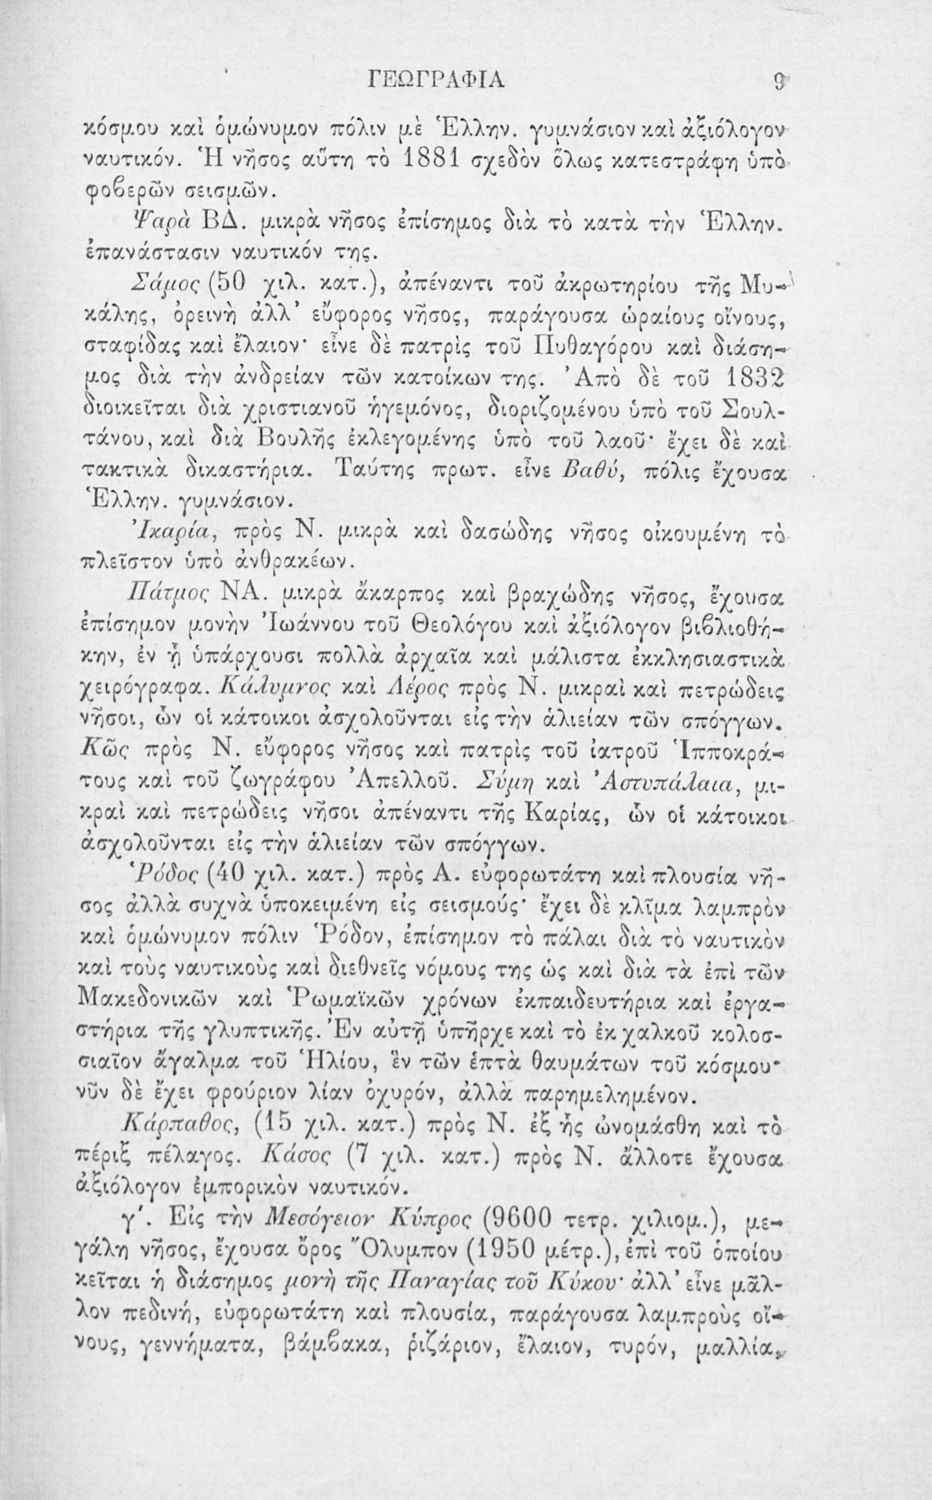 ΓΕΩΓΡΑΦΙΑ 9
κόσμου καὶ ὁμώνυμον πόλιν μὲ Ἑλλην. γυμνάσιον καὶ ἀξιόλογον
ναυτικόν. Ἡ νῆσος αὕτη τὸ 1881 σχεδὸν ὅλως κατεστράφη ὑπὸ
φοβερῶν σεισμῶν.
Ψαρὰ ΒΔ. μικρὰ νῆσος ἐπίσημος διὰ τὸ κατὰ τὴν Ἑλλην.
ἐπανάστασιν ναυτικόν της.
Σάμος (50 χιλ. κατ.), ἀπέναντι τοῦ ἀκρωτηρίου τῆς Μυ-
κάλης, ὀρεινὴ ἀλλ’ εὔφορος νῆσος, παράγουσα ὡραίους οἴνους,
σταφίδας καὶ ἔλαιον· εἶνε δὲ πατρὶς τοῦ Πυθαγόρου καὶ διάση-
μος διὰ τὴν ἀνδρείαν τῶν κατοίκων της. Ἀπὸ δὲ τοῦ 1832
διοικεῖται διὰ χριστιανοῦ ἡγεμόνος, διοριζομένου ὑπὸ τοῦ Σουλ-
τάνου, καὶ διὰ Βουλῆς ἐκλεγομένης ὑπὸ τοῦ λαοῦ· ἔχει δὲ καὶ
τακτικὰ δικαστήρια. Ταύτης πρωτ. εἶνε Βαθύ, πόλις ἔχουσα
Ἑλλην. γυμνάσιον.
Ἰκαρία, πρὸς Ν. μικρὰ καὶ δασώδης νῆσος οἰκουμένη τὸ
πλεῖστον ὑπὸ ἀνθρακέων.
Πάτμος ΝΑ. μικρὰ ἄκαρπος καὶ βραχώδης νῆσος, ἔχουσα
ἐπίσημον μονὴν Ἰωάννου τοῦ Θεολόγου καὶ ἀξιόλογον βιβλιοθή-
κην, ἐν ᾗ ὑπάρχουσι πολλὰ ἀρχαῖα καὶ μάλιστα ἐκκλησιαστικὰ
χειρόγραφα. Κάλυμνος καὶ Λέρος πρὸς Ν. μικραὶ καὶ πετρώδεις
νῆσοι, ὧν οἱ κάτοικοι ἀσχολοῦνται εἰς τὴν ἁλιείαν τῶν σπόγγων.
Κῶς πρὸς Ν. εὔφορος νῆσος καὶ πατρὶς τοῦ ἰατροῦ Ἱπποκρά-
τους καὶ τοῦ ζωγράφου Ἀπελλοῦ. Σύμη καὶ Ἀστυπάλαια, μι-
κραὶ καὶ πετρώδεις νῆσοι ἀπέναντι τῆς Καρίας, ὧν οἱ κάτοικοι
ἀσχολοῦνται εἰς τὴν ἁλιείαν τῶν σπόγγων.
Ῥόδος (40 χιλ. κατ.) πρὸς Α. εὐφορωτάτη καὶ πλουσία νῆ-
σος ἀλλὰ συχνὰ ὑποκειμένη εἰς σεισμούς· ἔχει δὲ κλῖμα λαμπρὸν
καὶ ὁμώνυμον πόλιν Ῥόδον, ἐπίσημον τὸ πάλαι διὰ τὸ ναυτικὸν
καὶ τοὺς ναυτικοὺς καὶ διεθνεῖς νόμους της ὡς καὶ διὰ τὰ ἐπὶ τῶν
Μακεδονικῶν καὶ Ῥωμαϊκῶν χρόνων ἐκπαιδευτήρια καὶ ἐργα-
στήρια τῆς γλυπτικῆς. Ἐν αὐτῇ ὑπῆρχε καὶ τὸ ἐκ χαλκοῦ κολοσ-
σιαῖον ἄγαλμα τοῦ Ἡλίου, ἓν τῶν ἑπτὰ θαυμάτων τοῦ κόσμου·
νῦν δὲ ἔχει φρούριον λίαν ὀχυρόν, ἀλλὰ παρημελημένον.
Κάρπαθος, (15 χιλ. κατ.) πρὸς Ν. ἐξ ἧς ὠνομάσθη καὶ τὸ
πέριξ πέλαγος. Κάσος (7 χιλ. κατ.) πρὸς Ν. ἄλλοτε ἔχουσα
ἀξιόλογον ἐμπορικὸν ναυτικόν.
γ΄. Εἰς τὴν Μεσόγειον Κύπρος (9600 τετρ. χιλιομ.), με-
γάλη νῆσος, ἔχουσα ὄρος Ὄλυμπον (1950 μέτρ.), ἐπὶ τοῦ ὁποίου
κεῖται ἡ διάσημος μονὴ τῆς Παναγίας τοῦ Κύκου· ἀλλ’ εἶνε μᾶλ-
λον πεδινή, εὐφορωτάτη καὶ πλουσία, παράγουσα λαμπροὺς οἴ-
νους, γεννήματα, βάμβακα, ῥιζάριον, ἔλαιον, τυρόν, μαλλία,